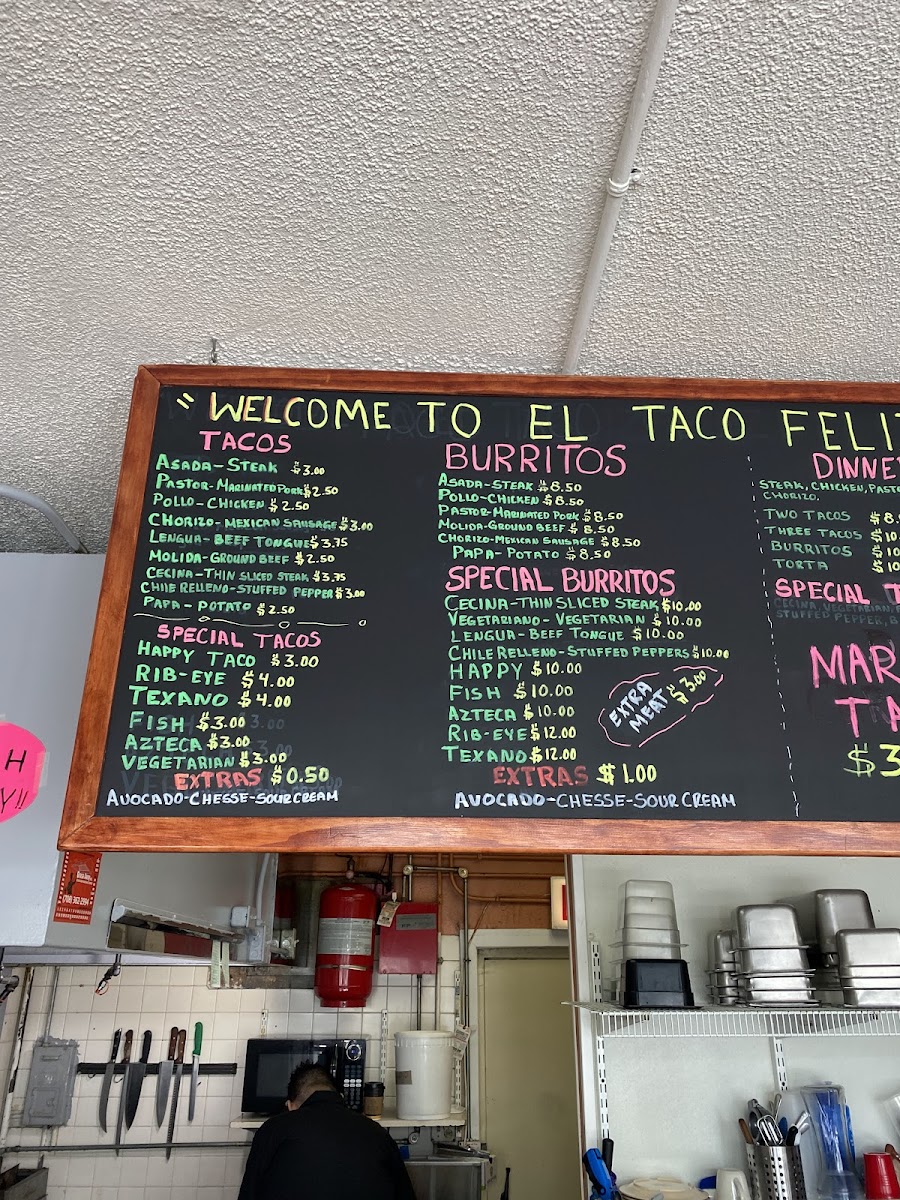 "WELCOME TO EL TACO FELI
TACOS
ASADA-STEAK $3.00
PASTOR-MARINATED PORK $2.50
POLLO-CHICKEN $2.50
CHORIZO-MEXICAN SAUSAGE $3.00
LENGUA-BEEF TONGUE $3.75
MOLIDA-GROUND BEEF $2.50
CECINA-THIN SLICED STEAK $3.75
CHILE RELLENO-STUFFED PEPPER $3.00
PAPA-POTATO $2.50
SPECIAL TACOS
HAPPY TACO $3.00
RIB-EYE $4.00
TEXANO $4.00
FISH $3.00
AZTECA $3.00
VEGETARIAN $3.00
EXTRAS $0.50
AVOCADO-CHESSE-SOUR CREAM
BURRITOS
ASADA-STEAK $8.50
POLLO-CHICKEN $8.50
PASTOR-MARINATED PORK $8.50
MOLIDA-GROUND BEEF $8.50
CHORIZO-MEXICAN SAUSAGE $8.50
PAPA-POTATO $8.50
SPECIAL BURRITOS
CECINA-THIN SLICED STEAK $10.00
VEGETARIANO-VEGETARIAN $10.00
LENGUA-BEEF TONGUE $10.00
CHILE RELLENO-STUFFED PEPPERS $10.00
HAPPY $10.00
FISH $10.00
AZTECA $10.00
RIB-EYE $12.00
TEXANO $12.00
EXTRA
MEAT $3.00
EXTRAS $1.00
AVOCADO-CHESSE-SOUR CREAM
DINNE
STEAK, CHICKEN, PASTO
CHORIZO.
TWO TACOS $8.
THREE TACOS $10.
BURRITOS $10
TORTA $10
SPECIAL T
CECINA, VEGETARIAN,
STUFFED PEPPER,
MAR
TA
$3
H
Y!!
(708) 362-2894